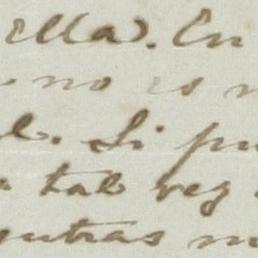 ella. En
no es
. Si pu
tal vez
entras m